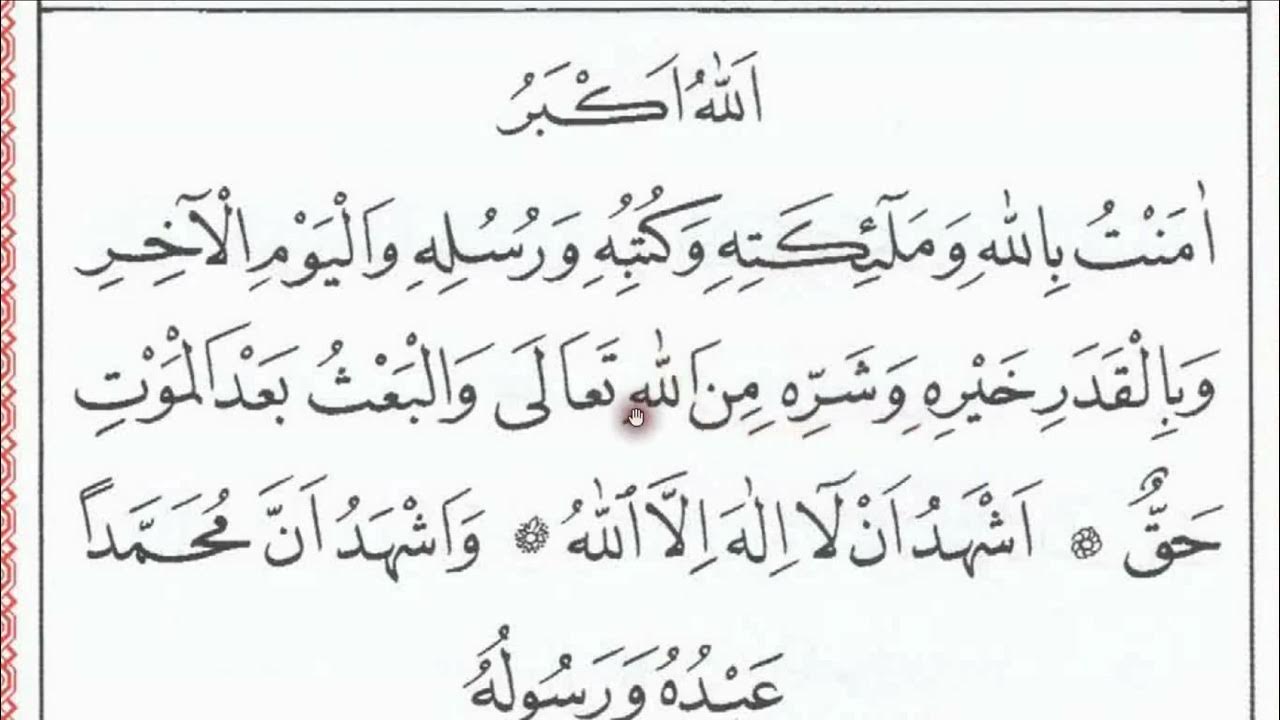 اَللّٰهُ اَكْبَرُ
اٰمَنْتُ بِاللّٰهِ وَمَلٰٓئِكَتِهِ وَكُتُبِهِ وَرُسُلِهِ وَالْيَوْمِ الْآخِرِ
وَبِالْقَدَرِ خَيْرِهِ وَشَرِّهِ مِنَ اللّٰهِ تَعَالَى وَالْبَعْثُ بَعْدَ الْمَوْتِ
حَقٌّ ❁ اَشْهَدُ اَنْ لَٓا اِلٰهَ اِلَّا اللّٰهُ ❁ وَاَشْهَدُ اَنَّ مُحَمَّداً
عَبْدُهُ وَرَسُولُهُ